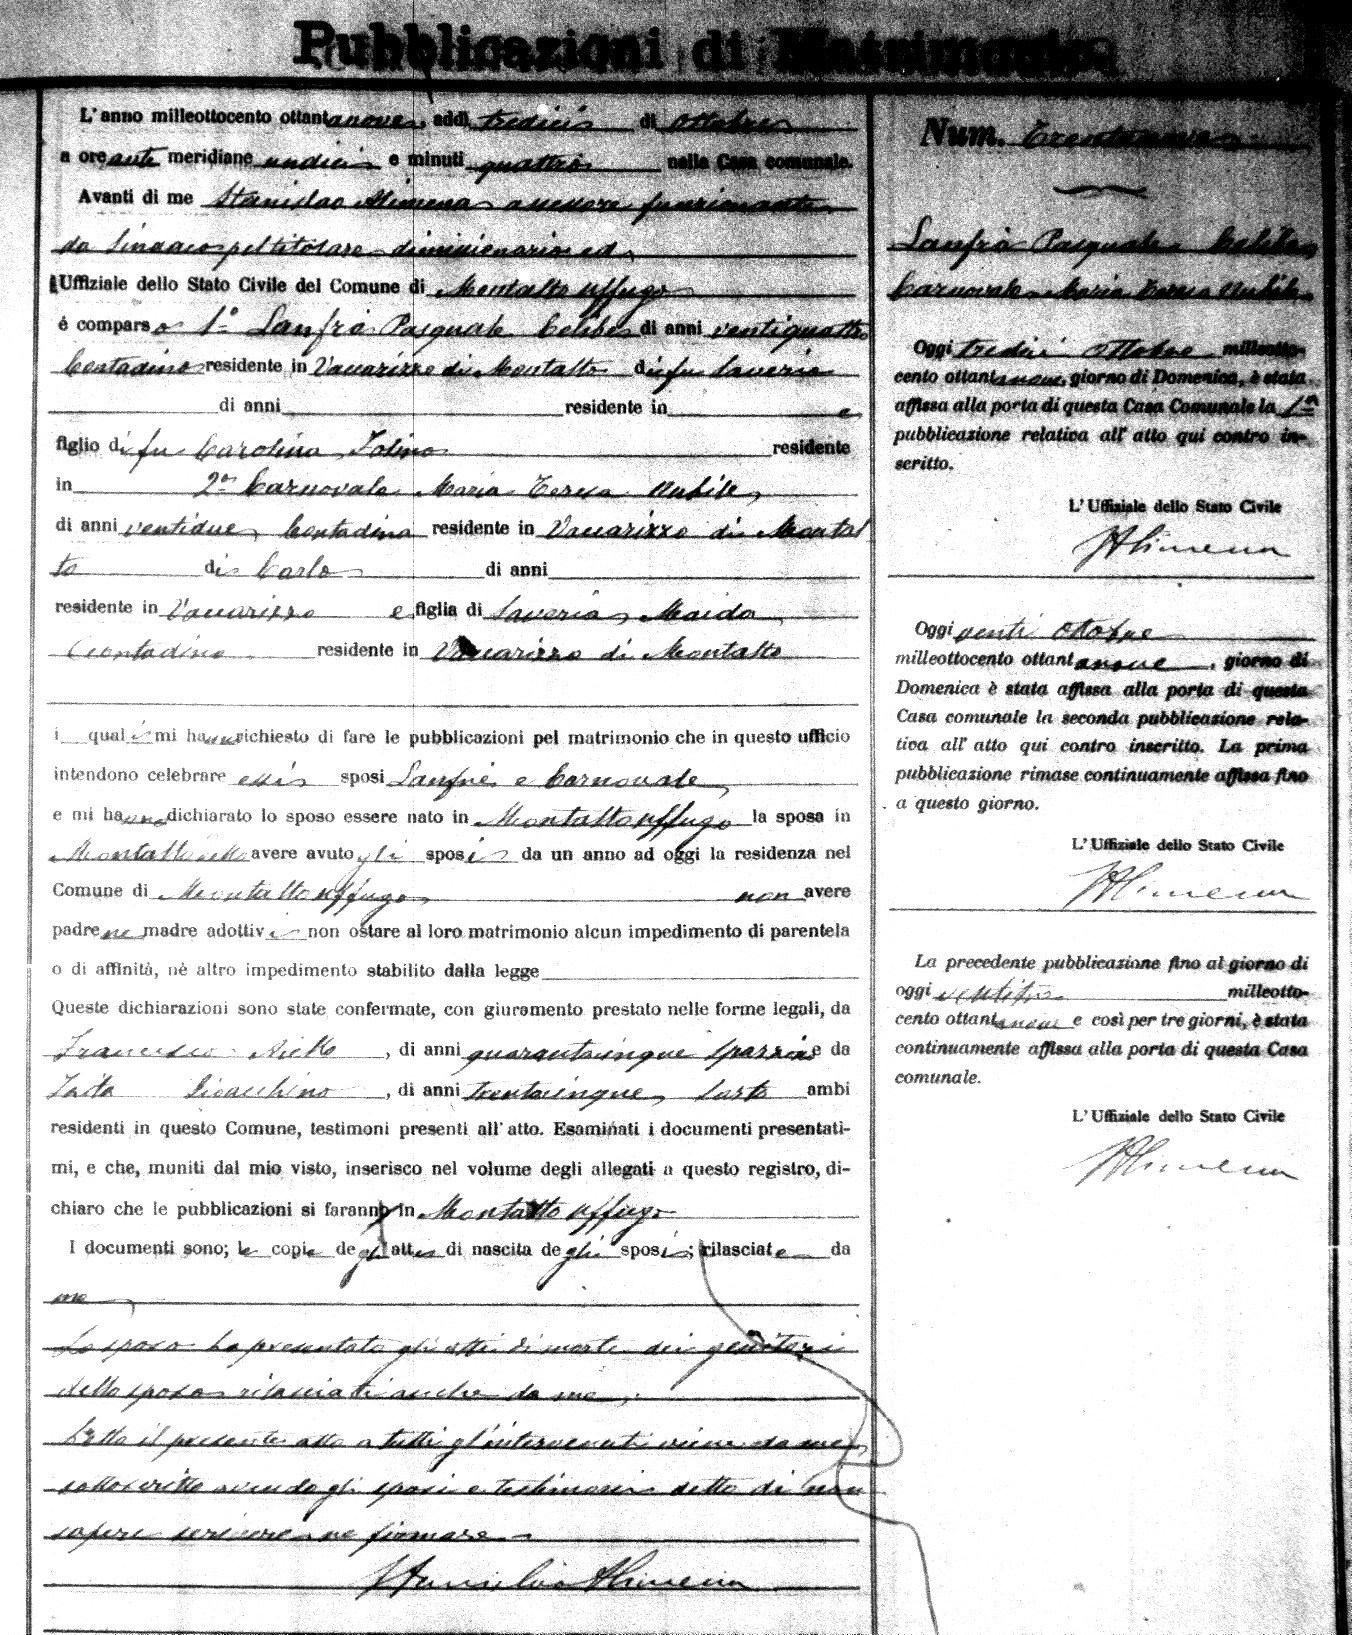 Pubblicazioni di Matrimonio
L'anno milleottocento ottantanove, addì tredici di Ottobre
a ore anti meridiane undici e minuti quattro nella Casa comunale.
Avanti di me Stanislao Alimena assessore funzionante
da Sindaco pel titolare dimissionario ed
Uffiziale dello Stato Civile del Comune di Montalto Uffugo
è comparso 1º Lanfrè Pasquale Celibe di anni ventiquattro
Contadino residente in Vaccarizzo di Montalto di fu Saverio
di anni residente in e
figlio di fu Carolina residente
in 2º Carnovale Maria Teresa Nubile,
di anni ventidue, Contadina residente in Vaccarizzo di Montal
to di Carlo di anni
residente in Vaccarizzo e figlia di Saveria Maida
Contadina residente in Vaccarizzo di Montalto
i quali mi hanno richiesto di fare le pubblicazioni pel matrimonio che in questo ufficio
intendono celebrare essi sposi Lanfrè e Carnovale,
e mi hanno dichiarato lo sposo essere nato in Montalto Uffugo la sposa in
Montalto avere avuto gli sposi da un anno ad oggi la residenza nel
Comune di Montalto Uffugo non avere
padre ne madre adottivi non ostare al loro matrimonio alcun impedimento di parentela
o di affinità, nè altro impedimento stabilito dalla legge
Queste dichiarazioni sono state confermate, con giuramento prestato nelle forme legali, da
Francesco , di anni quarantacinque e da
Gioacchino , di anni trentacinque, Sarto ambi
residenti in questo Comune, testimoni presenti all'atto. Esaminati i documenti presentati-
mi, e che, muniti dal mio visto, inserisco nel volume degli allegati a questo registro, di-
chiaro che le pubblicazioni si faranno in Montalto Uffugo
I documenti sono; le copie degli atti di nascita degli sposi; rilasciate da
me,
Lo sposo ha presentato gli atti di morte dei genitori
dello sposo rilasciati anche da me.
Letto il presente atto a tutti gl'intervenuti viene da me
sottoscritto avendo gli sposi e testimoni detto di non
sapere scrivere ne firmare
Stanislao Alimena
Num. Trentanove
Lanfrè Pasquale Celibe,
Carnovale Maria Teresa Nubile
Oggi tredici Ottobre milleotto-
cento ottantanove, giorno di Domenica, è stata
affissa alla porta di questa Casa Comunale la 1ª
pubblicazione relativa all'atto qui contro in-
scritto.
L'Uffiziale dello Stato Civile
SAlimena
Oggi venti Ottobre
milleottocento ottantanove, giorno di
Domenica è stata affissa alla porta di questa
Casa comunale la seconda pubblicazione rela-
tiva all'atto qui contro inscritto. La prima
pubblicazione rimase continuamente affissa fino
a questo giorno.
L'Uffiziale dello Stato Civile
SAlimena
La precedente pubblicazione fino al giorno di
oggi ventitre milleotto-
cento ottantanove e così per tre giorni, è stata
continuamente affissa alla porta di questa Casa
comunale.
L'Uffiziale dello Stato Civile
SAlimena